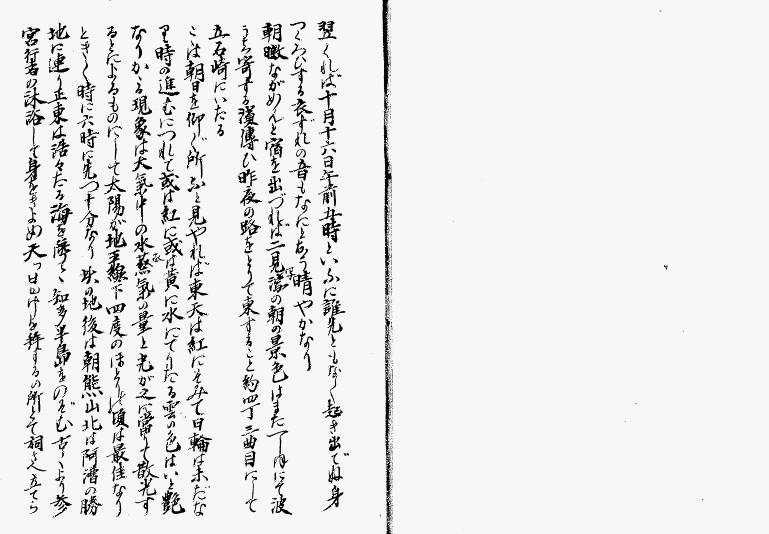 翌くれば十月十六日午前五時といふに誰先ともなく起き出でぬ身
つくろひする衣ずれの音もなにとなう晴やかなり
朝暾ながめんと宿を出づれば二見濱の朝の景色はまた一しほにて波
うち寄する濱傳ひ昨夜の路をとりて東すること約四丁三曲目にして
立石崎にいたる
こは朝日を仰ぐ所ふと見やれば東天は紅にそみて日輪は未だな
り時の進むにつれて或は紅に或は黄に水にてりたる雲の色はいと艶
なりかゝる現象は大氣中の水蒸氣の量と光が之に當りて散光す
るとによるものにして太陽が地平線下四度のほとりの頃は最佳なり
ときく時に六時に先つ十分なり 此の地後は朝熊山北は阿漕の勝
地に連り正東は浩々たる海を隔てゝ知多半島をのぞむ古へより参
宮行者の沐浴して身をきよめ天つ日かげを拜するの所とて祠さへ立てら